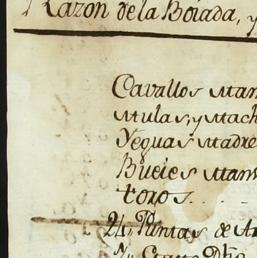 Razon de la Boiada, y
Cavallos Man
Mulas, y Mach
Yeguas Madre
Bueies Mans
toros..
24, Puntas de